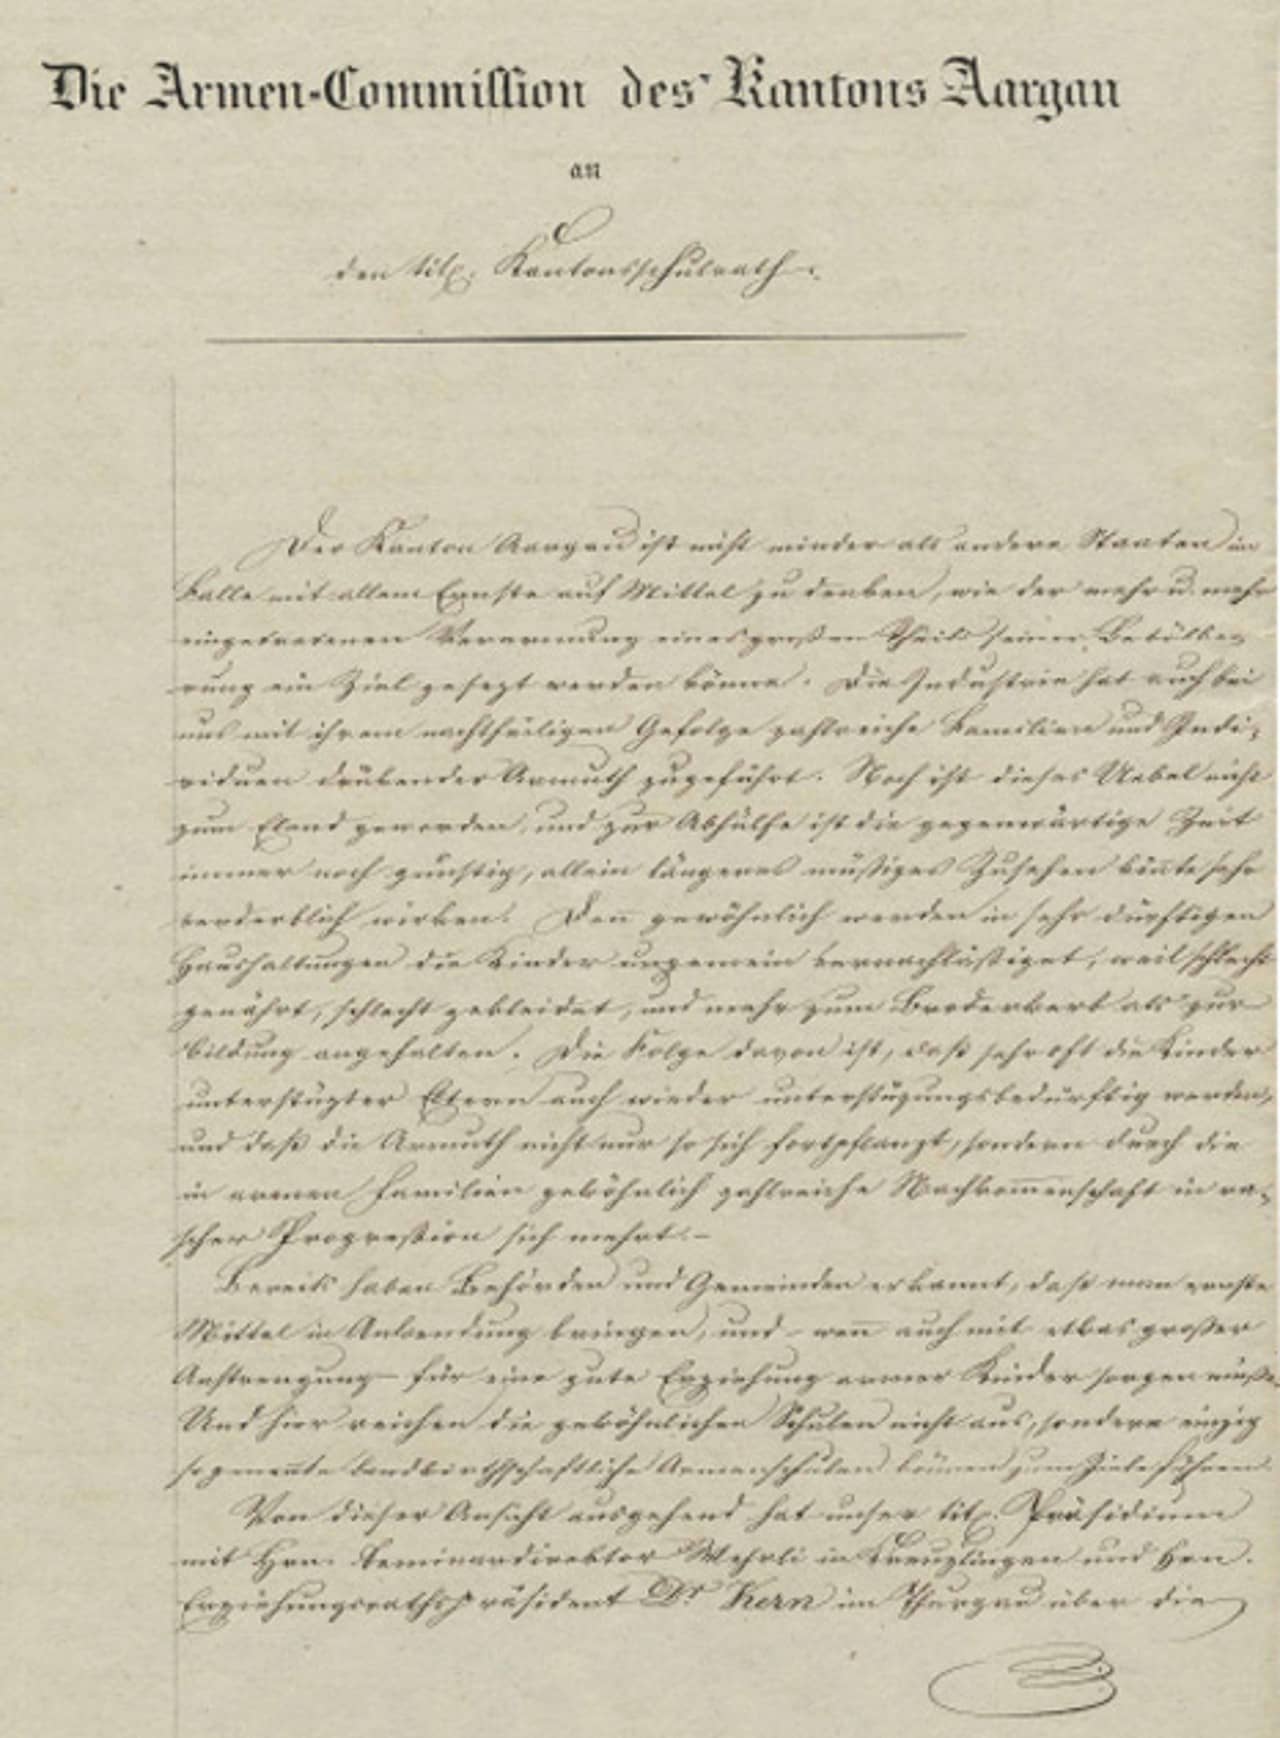 Die Armen-Commission des Kantons Aargau
an
den titl. Kantonsschulrath.
Der Kanton Aargau ist nicht minder als andere Staaten im
Falle mit allem Ernste auf Mittel zu denken, wie der mehr u. mehr
eingetretenen Verarmung eines großen Theils seiner Bevölke-
rung ein Ziel gesezt werden könne. Die Industrie hat auch bei
uns mit ihrem nachtheiligen Gefolge zahlreiche Familien und Indi-
viduen drükender Armuth zugeführt. Noch ist dieses Uebel nicht
zum Elend geworden, und zur Abhülfe ist die gegenwärtige Zeit
immer noch günstig, allein längeres müßiges Zusehen könnte sehr
verderblich wirken. Denn gewöhnlich werden in sehr dürftigen
Haushaltungen die Kinder ungemein vernachläßiget, weil schlecht
genährt, schlecht gekleidet, und mehr zum Broderwerb als zur
Bildung angehalten. Die Folge davon ist, daß sehr oft die Kinder
unterstüzter Eltern auch wieder unterstüzungsbedürftig werden,
und daß die Armuth nicht nur so sich fortpflanzt, sondern durch die
in armen Familien gewöhnlich zahlreiche Nachkommenschaft in ra-
scher Progreßion sich mehrt.-
Bereits haben Behörden und Gemeinden erkannt, daß man ernste
Mittel in Anwendung bringen, und - wenn auch mit etwas großer
Anstrengung - für eine gute Erziehung armer Kinder sorgen müße.
Und hier reichen die gewöhnlichen Schulen nicht aus, sondern einzig
sogenannte landwirthschaftliche Armenschulen können zum Ziele führen.
Von dieser Ansicht ausgehend hat unser titl. Präsidium
mit Hrn. Seminardirektor Wehrli in Kreuzlingen und Hrn.
Erziehungsrathspräsident Dr Kern im Thurgau über die